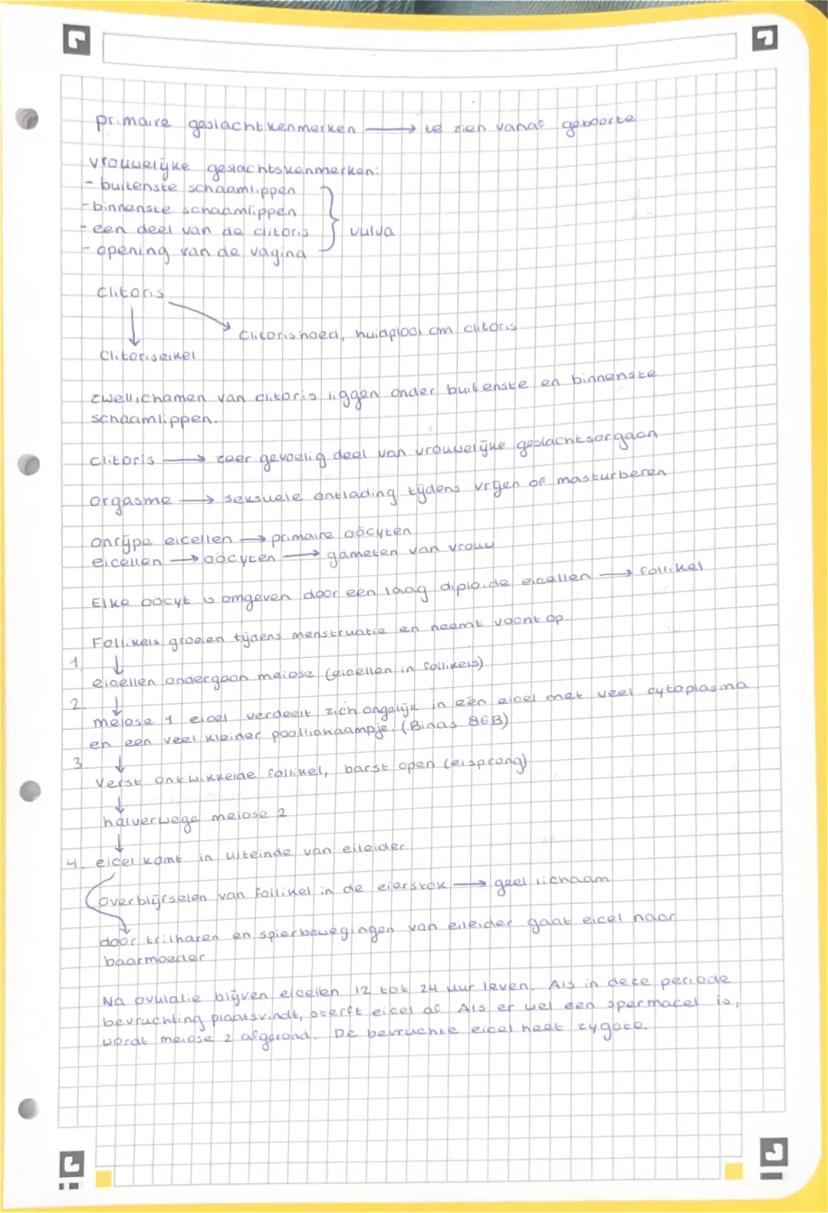 primaire geslachtkenmerken → te zien vanaf geboorte
vrouwelijke geslachtskenmerken:
- buitenste schaamlippen
- binnenste schaamlippen
- een deel van de clitoris } vulva
- opening van de vagina
clitoris
clitorishoed, huidplooi om clitoris
clitoriseikel
zwellichamen van clitoris liggen onder buitenste en binnenste
schaamlippen.
clitoris → zeer gevoelig deel van vrouwelijke geslachtsorgaan
orgasme → seksuele ontlading tijdens vrijen of masturberen
onrijpe eicellen → primaire oöcyten
eicellen → oöcyten → gameten van vrouw
Elke oöcyt is omgeven door een laag diploïde eicellen → follikel
Follikels groeien tijdens menstruatie en neemt vocht op.
1 ↓
eicellen ondergaan meiose (eicellen in follikels)
2. ↓
meiose 1 eicel verdeelt zich ongelijk in een eicel met veel cytoplasma
en een veel kleiner poollichaampje. (Binas 86B)
3. ↓
Verst ontwikkelde follikel, barst open (eisprong)
↓
halverwege meiose 2
↓
4. eicel komt in uiteinde van eileider
overblijfselen van follikel in de eierstok → geel lichaam
door trilharen en spierbewegingen van eileider gaat eicel naar
baarmoeder
Na ovulatie blijven eicellen 12 tot 24 uur leven. Als in deze periode
bevruchting plaatsvindt, sterft eicel af. Als er wel een spermacel is,
wordt meiose 2 afgerond. De bevruchte eicel heet zygote.